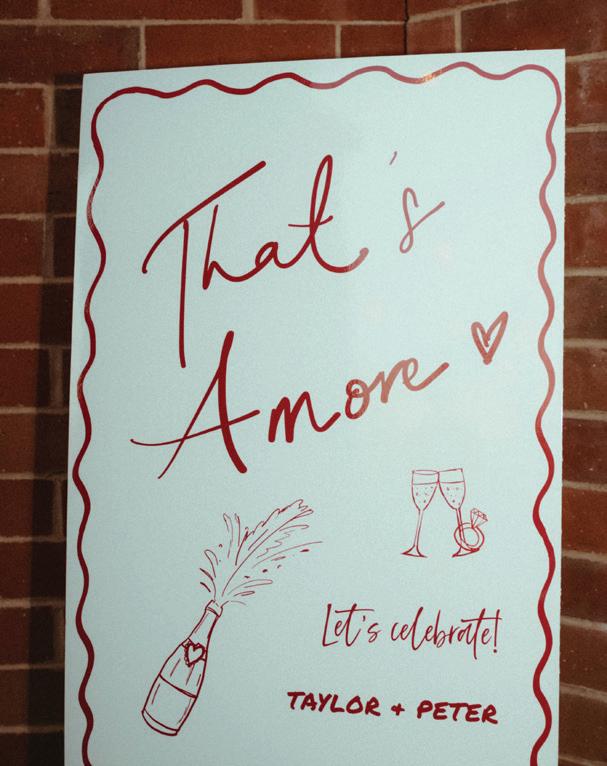 That's
Amore
Let's celebrate!
TAYLOR + PETER